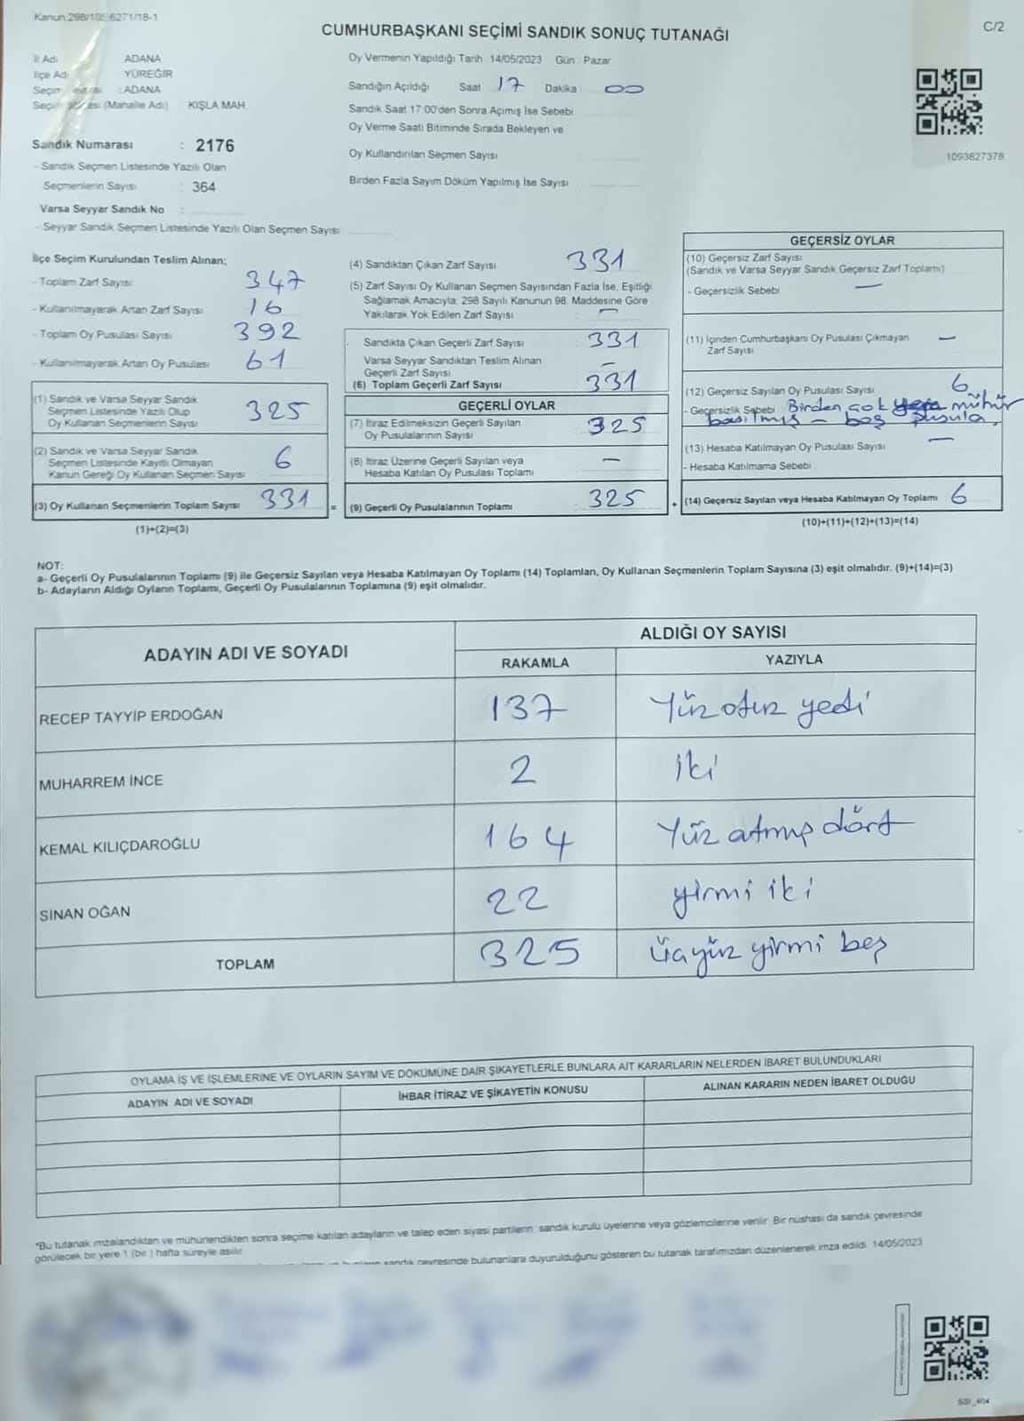 Kanun:298/105 6271/18-1
C/2
CUMHURBAŞKANI SEÇİMİ SANDIK SONUÇ TUTANAĞI
İl Adı ADANA
İlçe Adı YÜREĞİR
Seçim : ADANA
(Mahalle Adı) KIŞLA MAH.
Sandık Numarası : 2176
- Sandık Seçmen Listesinde Yazılı Olan
Seçmenlerin Sayısı : 364
Varsa Seyyar Sandık No :
- Seyyar Sandık Seçmen Listesinde Yazılı Olan Seçmen Sayısı
Oy Vermenin Yapıldığı Tarih 14/05/2023 Gün : Pazar
Sandığın Açıldığı Saat 17 Dakika 00
Sandık Saat 17:00'den Sonra Açımış İse Sebebi
Oy Verme Saati Bitiminde Sırada Bekleyen ve
Oy Kullandırılan Seçmen Sayısı
Birden Fazla Sayım Döküm Yapılmış İse Sayısı
1093827378
İlçe Seçim Kurulundan Teslim Alınan;
- Toplam Zarf Sayısı 347
- Kullanılmayarak Artan Zarf Sayısı 16
- Toplam Oy Pusulası Sayısı 392
- Kullanılmayarak Artan Oy Pusulası 61
(1) Sandık ve Varsa Seyyar Sandık
Seçmen Listesinde Yazılı Olup
Oy Kullanan Seçmenlerin Sayısı 325
(2) Sandık ve Varsa Seyyar Sandık
Seçmen Listesinde Kayıtlı Olmayan
Kanun Gereği Oy Kullanan Seçmen Sayısı 6
(3) Oy Kullanan Seçmenlerin Toplam Sayısı 331 =
(1)+(2)=(3)
(4) Sandıktan Çıkan Zarf Sayısı 331
(5) Zarf Sayısı Oy Kullanan Seçmen Sayısından Fazla İse, Eşitliği
Sağlamak Amacıyla; 298 Sayılı Kanunun 98. Maddesine Göre
Yakılarak Yok Edilen Zarf Sayısı —
Sandıkta Çıkan Geçerli Zarf Sayısı 331
Varsa Seyyar Sandıktan Teslim Alınan
Geçerli Zarf Sayısı —
(6) Toplam Geçerli Zarf Sayısı 331
GEÇERLİ OYLAR
(7) İtiraz Edilmeksizin Geçerli Sayılan
Oy Pusulalarının Sayısı 325
(8) İtiraz Üzerine Geçerli Sayılan veya
Hesaba Katılan Oy Pusulası Toplamı —
(9) Geçerli Oy Pusulalarının Toplamı 325 +
GEÇERSİZ OYLAR
(10) Geçersiz Zarf Sayısı
(Sandık ve Varsa Seyyar Sandık Geçersiz Zarf Toplamı)
- Geçersizlik Sebebi —
(11) İçinden Cumhurbaşkanı Oy Pusulası Çıkmayan
Zarf Sayısı —
(12) Geçersiz Sayılan Oy Pusulası Sayısı 6
- Geçersizlik Sebebi Birden çok mühür
basılmış - beş pusula.
(13) Hesaba Katılmayan Oy Pusulası Sayısı —
- Hesaba Katılmama Sebebi
(14) Geçersiz Sayılan veya Hesaba Katılmayan Oy Toplamı 6
(10)+(11)+(12)+(13)=(14)
NOT:
a- Geçerli Oy Pusulalarının Toplamı (9) ile Geçersiz Sayılan veya Hesaba Katılmayan Oy Toplamı (14) Toplamları, Oy Kullanan Seçmenlerin Toplam Sayısına (3) eşit olmalıdır. (9)+(14)=(3)
b- Adayların Aldığı Oyların Toplamı, Geçerli Oy Pusulalarının Toplamına (9) eşit olmalıdır.
ADAYIN ADI VE SOYADI
ALDIĞI OY SAYISI
RAKAMLA YAZIYLA
RECEP TAYYİP ERDOĞAN 137 Yüz otuz yedi
MUHARREM İNCE 2 iki
KEMAL KILIÇDAROĞLU 164 Yüz atmış dört
SİNAN OĞAN 22 yirmi iki
TOPLAM 325 üçyüz yirmi beş
OYLAMA İŞ VE İŞLEMLERİNE VE OYLARIN SAYIM VE DÖKÜMÜNE DAİR ŞİKAYETLERLE BUNLARA AİT KARARLARIN NELERDEN İBARET BULUNDUKLARI
ADAYIN ADI VE SOYADI İHBAR İTİRAZ VE ŞİKAYETİN KONUSU ALINAN KARARIN NEDEN İBARET OLDUĞU
*Bu tutanak imzalandıktan ve mühürlendikten sonra seçime katılan adayların ve talep eden siyasi partilerin sandık kurulu üyelerine veya gözlemcilerine verilir. Bir nüshası da sandık çevresinde
görülecek bir yere 1 (bir) hafta süreyle asılır.
sandık çevresinde bulunanlara duyurulduğunu gösteren bu tutanak tarafımızdan düzenlenerek imza edildi. 14/05/2023